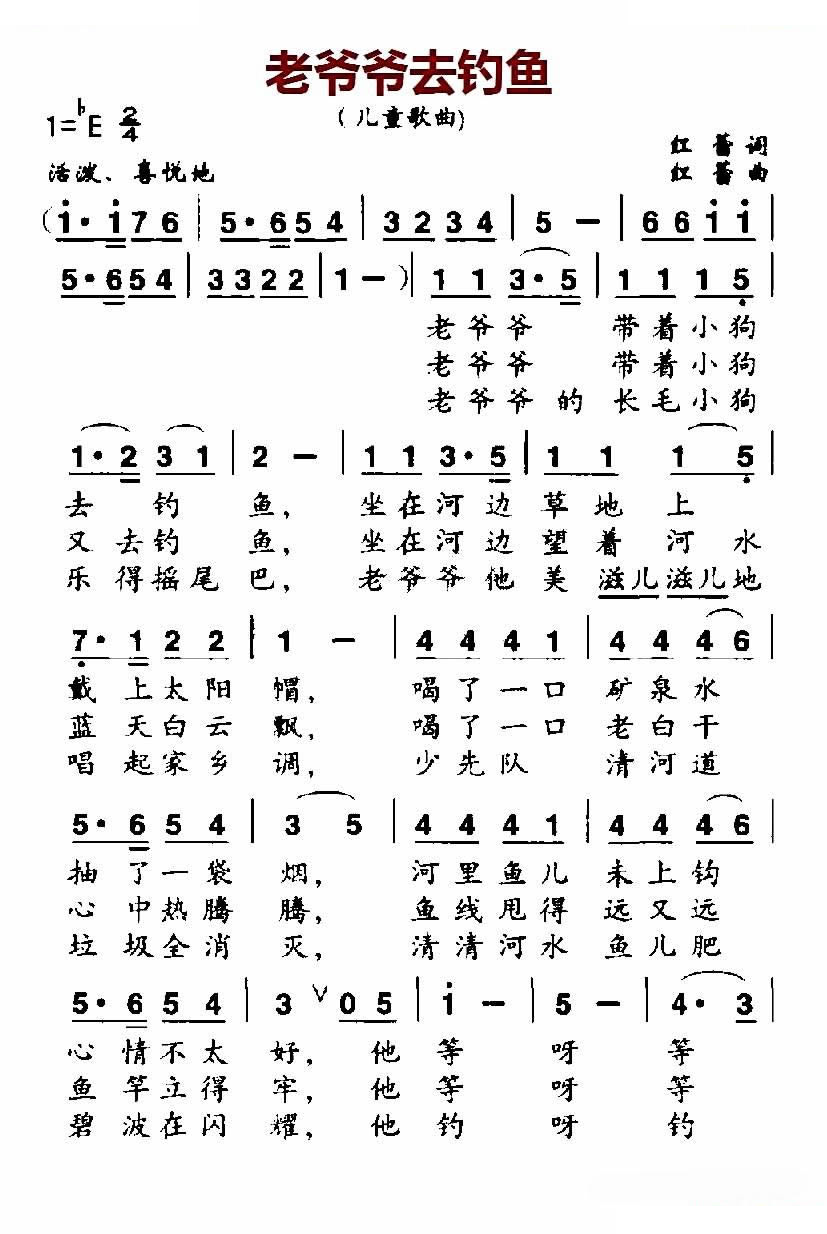 老爷爷去钓鱼
(儿童歌曲)
1=♭E 2/4
红蕾词
活泼、喜悦地
红蕾曲
(i· i 7 6 | 5· 6 5 4 | 3 2 3 4 | 5 — | 6 6 i i |
5· 6 5 4 | 3 3 2 2 | 1 — ) | 1 1 3· 5 | 1 1 1 5 |
老爷爷 带着小狗
老爷爷 带着小狗
老爷爷的 长毛小狗
1· 2 3 1 | 2 — | 1 1 3· 5 | 1 1 1 5 |
去 钓 鱼, 坐在河边草地上
又去钓 鱼, 坐在河边望着河水
乐得摇尾巴, 老爷爷他美滋儿滋儿地
7· 1 2 2 | 1 — | 4 4 4 1 | 4 4 4 6 |
戴上太阳帽, 喝了一口矿泉水
蓝天白云飘, 喝了一口老白干
唱起家乡调, 少先队 清河道
5· 6 5 4 | 3 5 | 4 4 4 1 | 4 4 4 6 |
抽了一袋烟, 河里鱼儿未上钩
心中热腾腾, 鱼线甩得远又远
垃圾全消灭, 清清河水鱼儿肥
5· 6 5 4 | 3 ∨ 0 5 | i — | 5 — | 4· 3 |
心情不太好, 他等呀等
鱼竿立得牢, 他等呀等
碧波在闪耀, 他钓呀钓